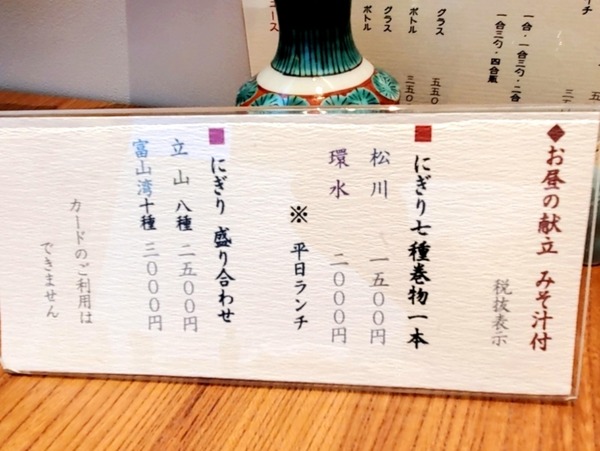 ◆お昼の献立 みそ汁付
税抜表示
■にぎり七種巻物一本
松川 一五〇〇円
環水 二〇〇〇円
※ 平日ランチ
■にぎり 盛り合わせ
立山 八種 二五〇〇円
富山湾十種 三〇〇〇円
カードのご利用は
できません
一合・一合三勺・二合
一合三勺・四合瓶
グラス
ボトル
グラス
ボトル